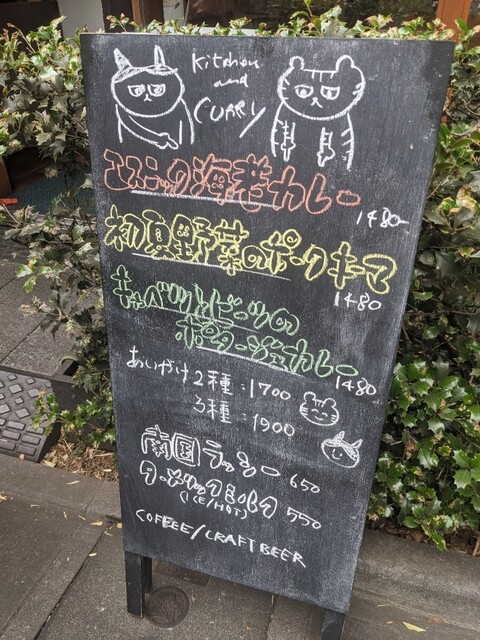 Kitchen
and
CURRY
エスニック海老カレー
1480
初夏野菜のポークキーマ
1480
キャベツとドンツの
ポタージュカレー
1480
あいがけ2種:1700
3種:1900
南国ラッシー 650
ターメリックミルク
(ICE/HOT) 550
COFFEE/CRAFT BEER